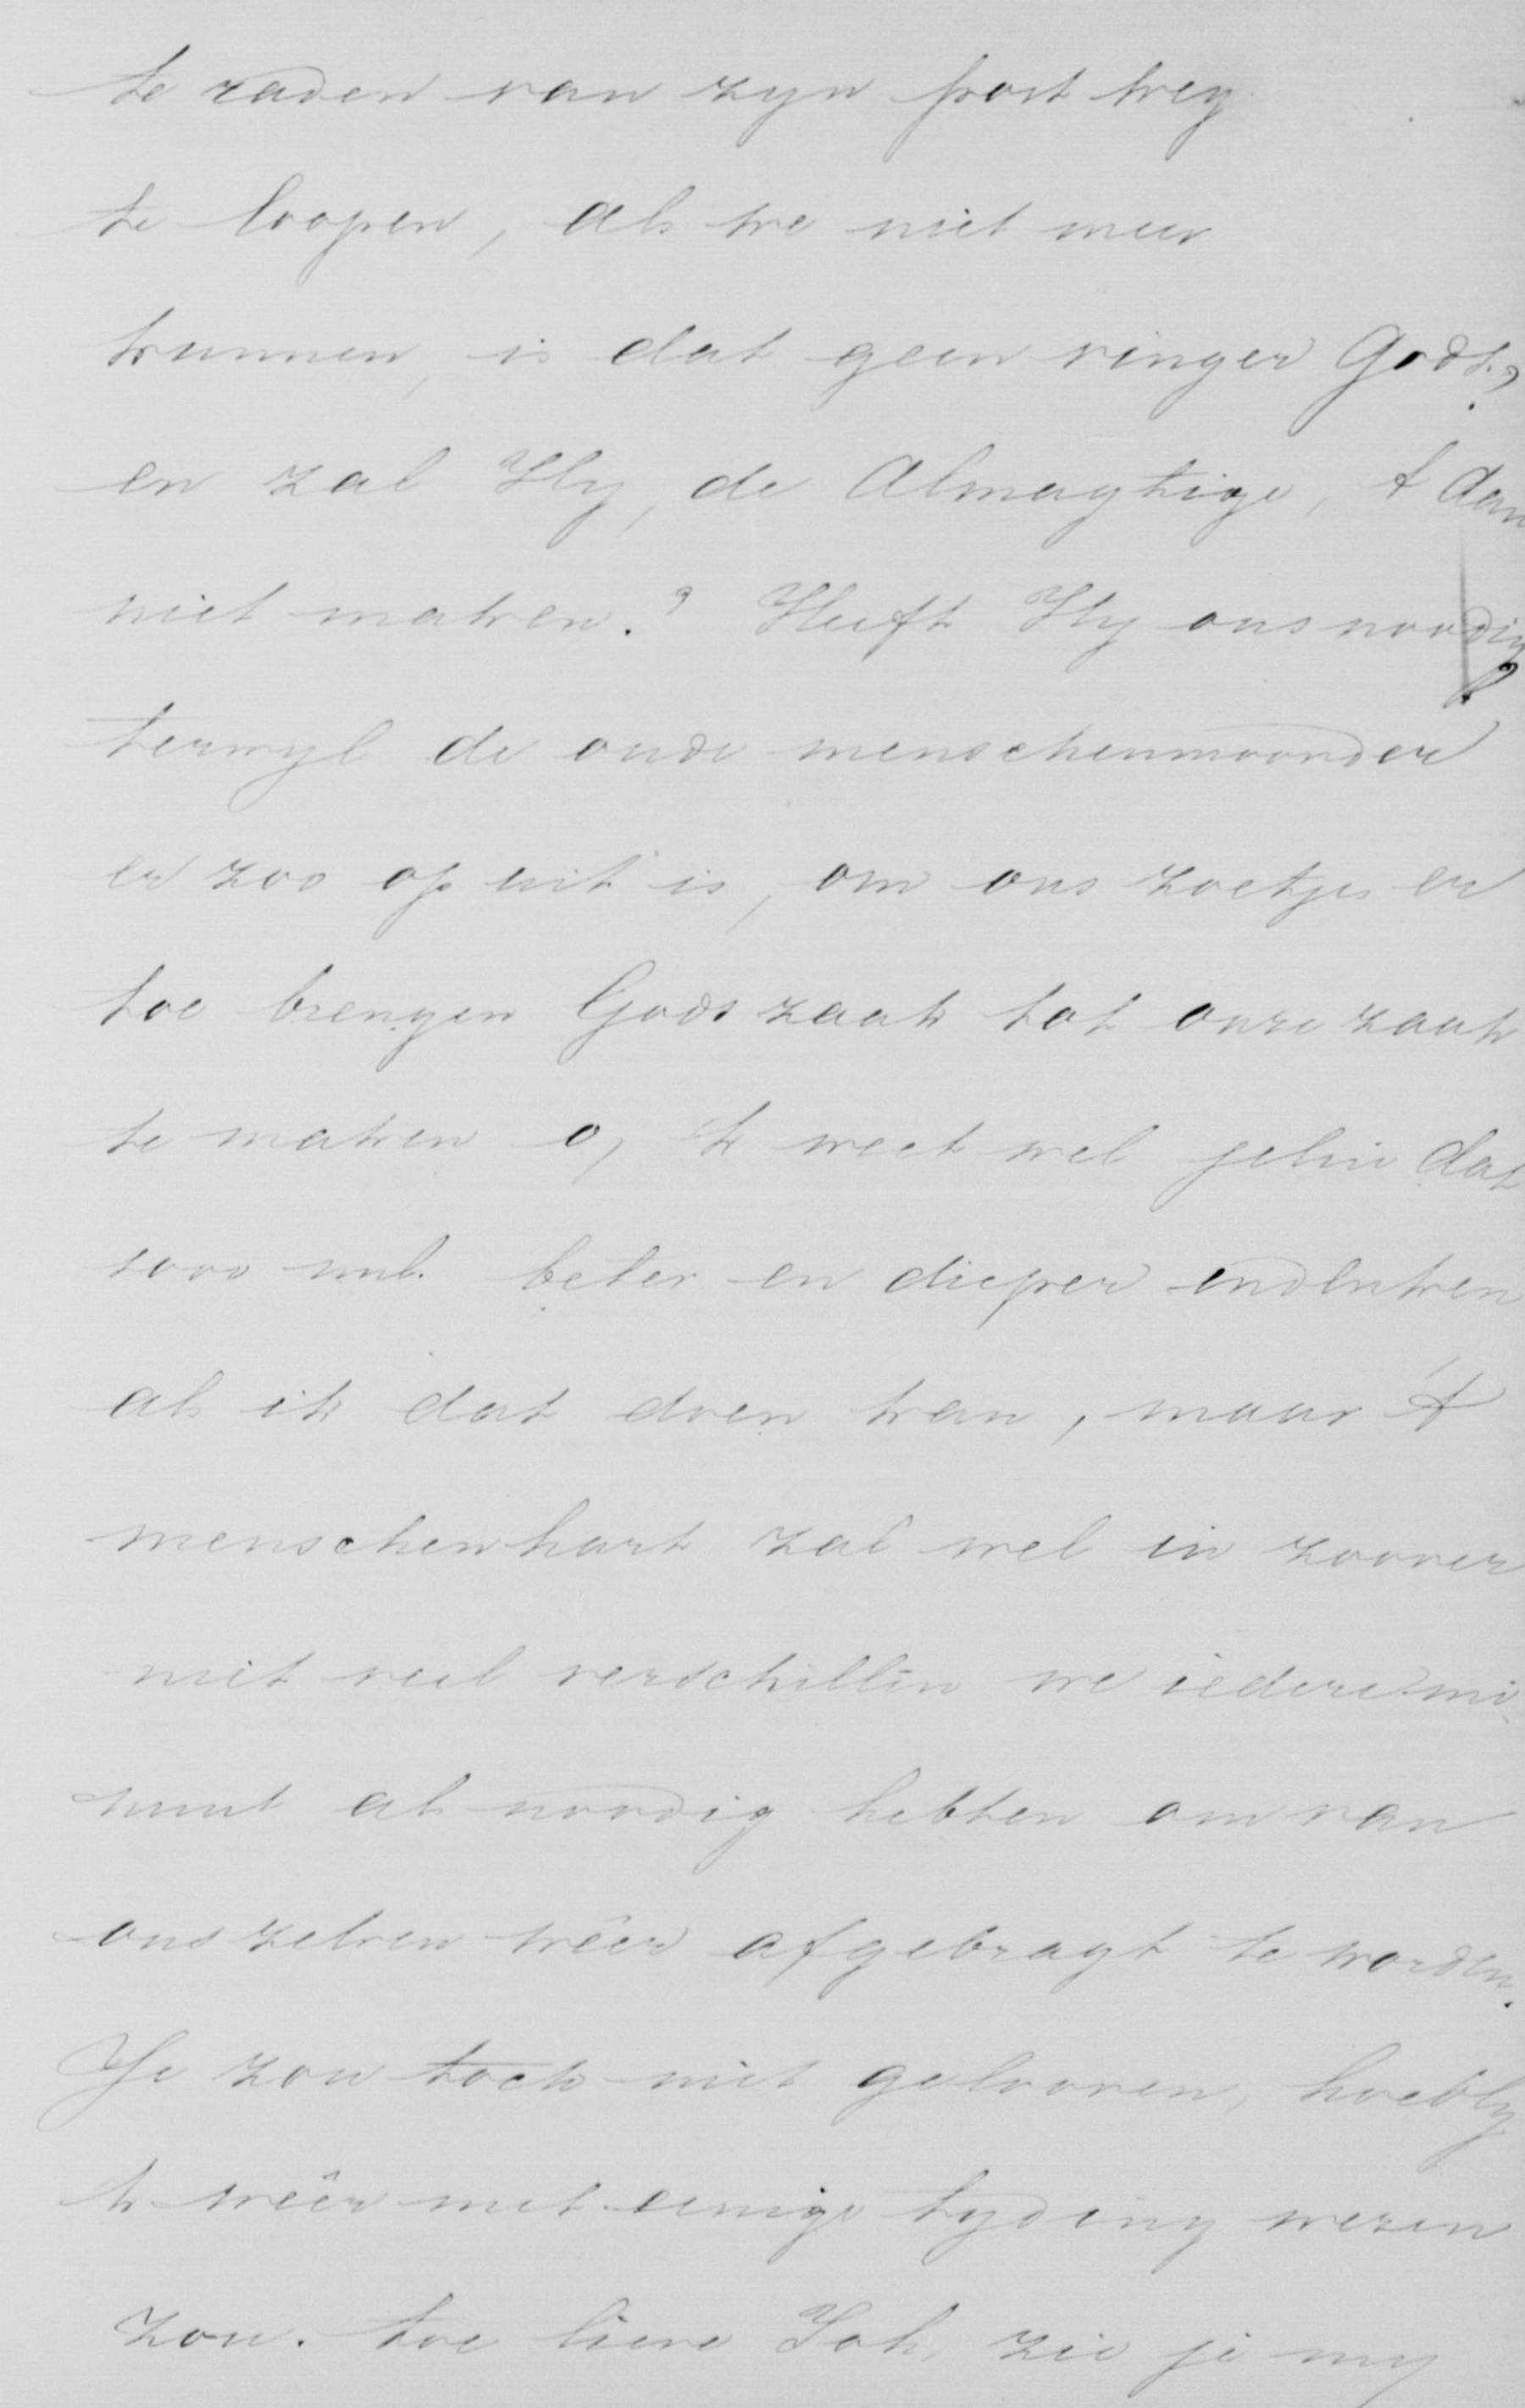 te raden van zyn post weg
te loopen, als we niet meer
kunnen, is dat geen vinger Gods?
en zal Hy, de Almagtige, 't dan
niet maken? Heeft Hy ons noodig?
terwyl de oude menschenmoorder
er zoo op uit is, om ons zoetjes er
toe brengen Gods zaak tot onze zaak
te maken o, 'k weet wel jelui dat
1000 ml. beter en dieper indenken
als ik dat doen kan, maar 't
menschenhart zal wel in zoover
niet veel verschillen we iedere mi
nuut als noodig hebben om van
ons zelven wêer afgebragt te worden.
Je zou toch niet gelooven, hoebly
'k wêer met eenige tyding wezen
zou. toe lieve Joh, zie je my